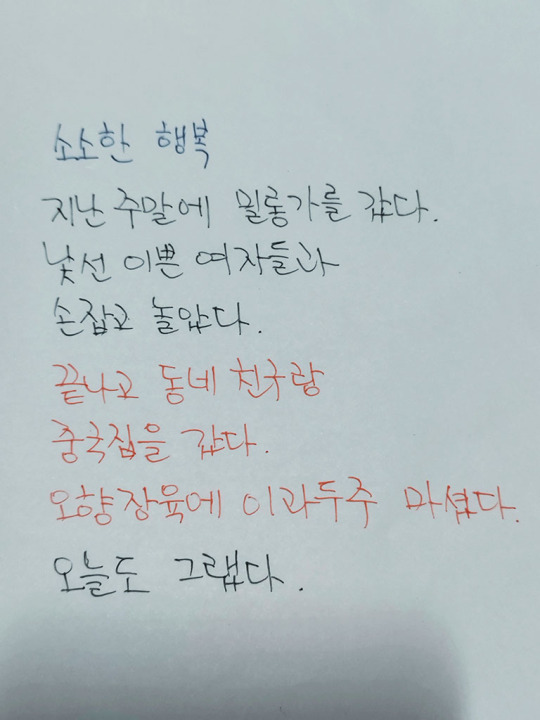 소소한 행복
지난 주말에 밀롱가를 갔다.
낯선 이쁜 여자들과
손잡고 놀았다.
끝나고 동네 친구랑
중국집을 갔다.
오향장육에 이과두주 마셨다.
오늘도 그랬다.